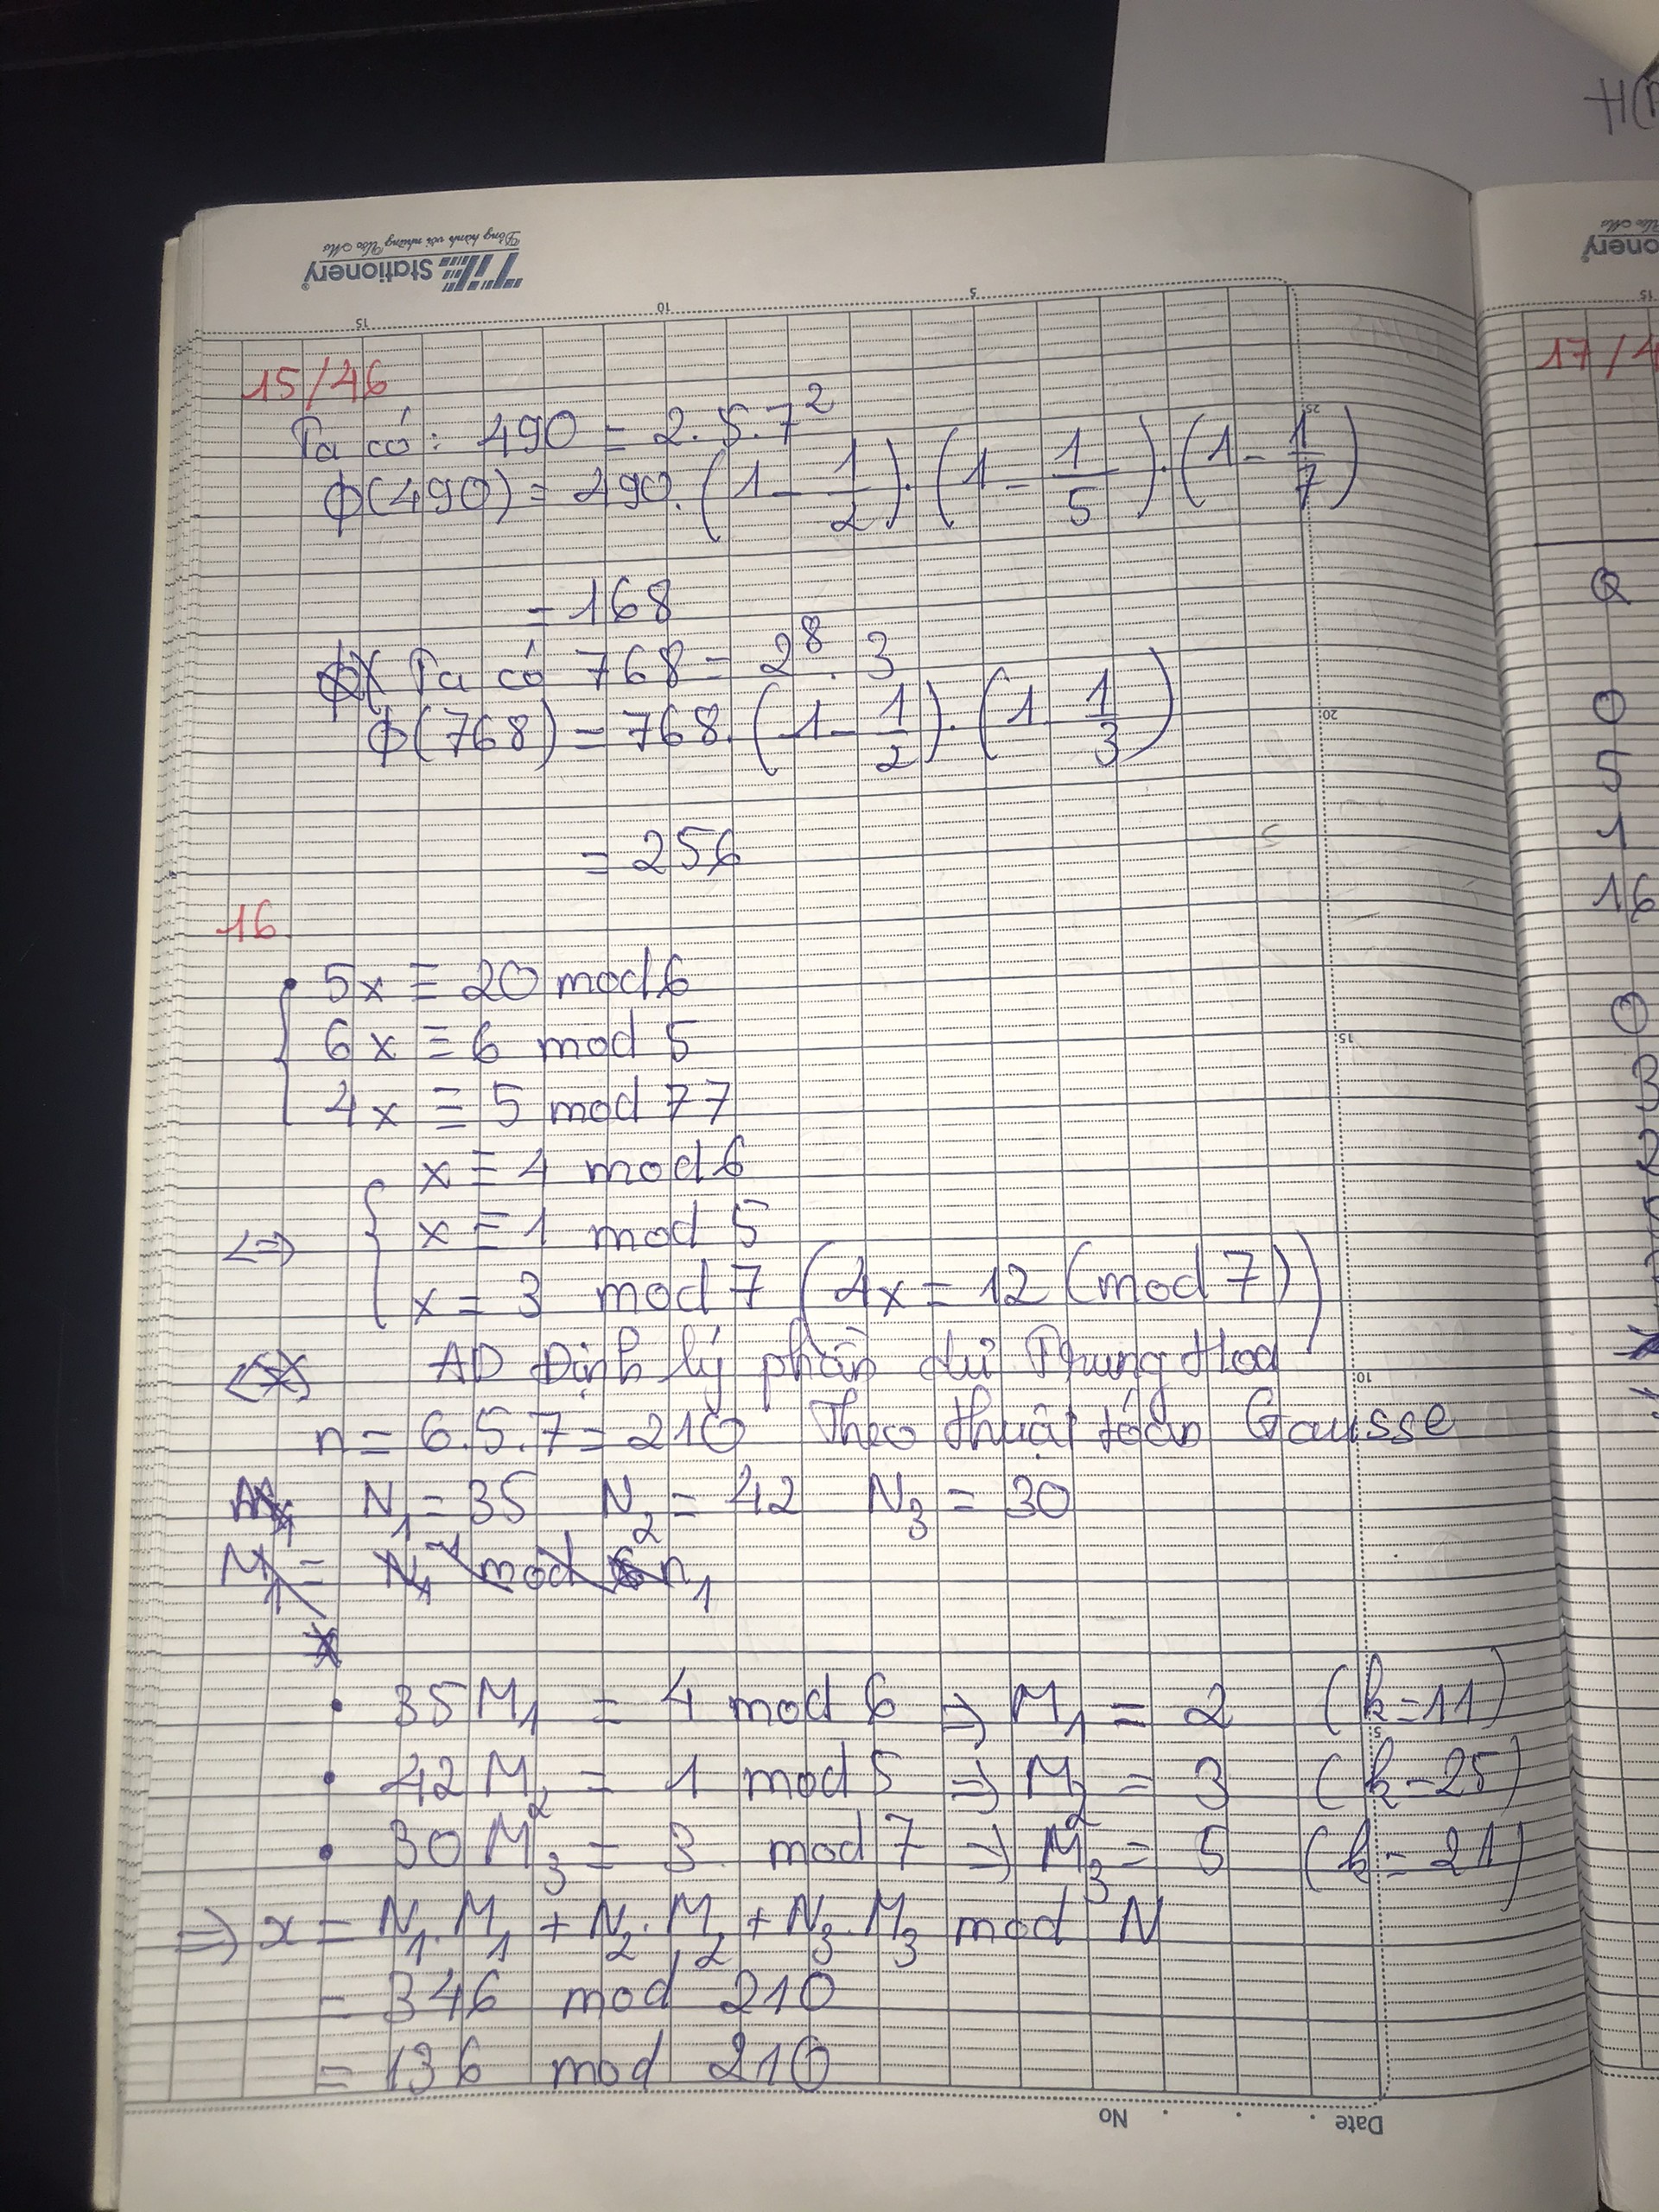 TZE Stationery
Đồng hành với những Ước Mơ
15 10 5
15/46
Ta có: 490 = 2.5.7²
ϕ(490) = 490.(1 - 1/2).(1 - 1/5).(1 - 1/7)
= 168
Ta có 768 = 2⁸.3
ϕ(768) = 768.(1 - 1/2).(1 1/3)
= 256
16
5x ≡ 20 mod 6
6x ≡ 6 mod 5
4x ≡ 5 mod 77
x ≡ 4 mod 6
<=> x ≡ 1 mod 5
x = 3 mod 7 (4x = 12 (mod 7))
AD Định lý phần dư Trung Hoa
n = 6.5.7 = 210 Theo thuật toán Gausse
N₁ = 35 N₂ = 42 N₃ = 30
M₁ = N₁⁻¹ mod n₁
• 35M₁ = 4 mod 6 => M₁ = 2 (k=11)
• 42M₂ = 1 mod 5 => M₂ = 3 (k=25)
• 30M₃ = 3 mod 7 => M₃ = 5 (k=21)
=> x = N₁.M₁ + N₂.M₂ + N₃.M₃ mod N
= 346 mod 210
= 136 mod 210
Date . . . No
25
20
15
10
5
17/4
0
5
1
16
3
2